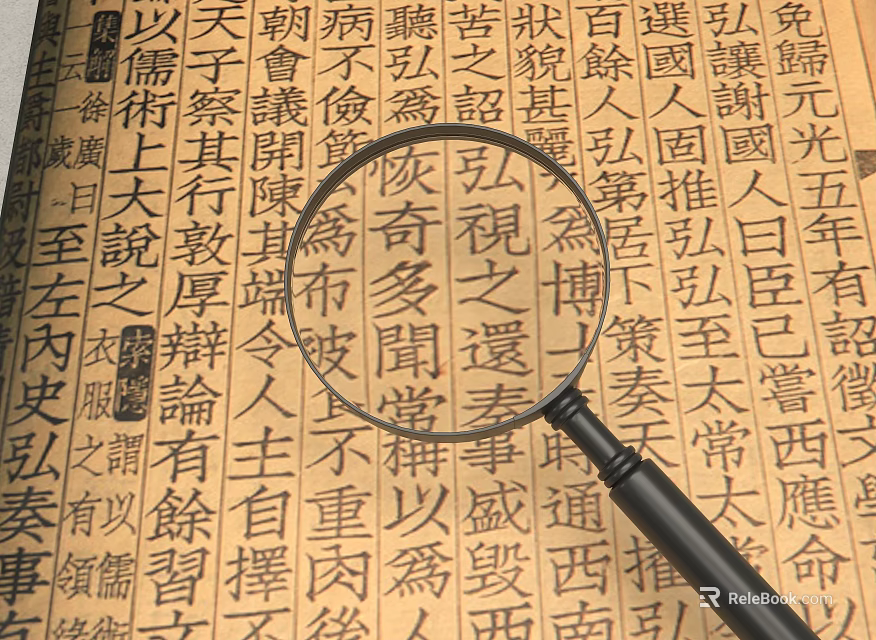 免歸元光五年有詔徵文學
弘讓謝國人曰臣已嘗西應命以
選國人固推弘弘至太常太常
百餘人弘第居下策奏天擢弘
狀貌甚麗為博士時通西南
苦之詔弘視之還奏事盛毀西
聽弘為恢奇多聞常稱以為人
病不儉節為布被食不重肉後
朝會議開陳其端令人主自擇不
天子察其行敦厚辯論有餘習文
以儒術上大說之
索隱謂以儒術
衣服之有領緣
集解徐廣曰
一云一歲
至左內史弘奏事有
ReleBook.com